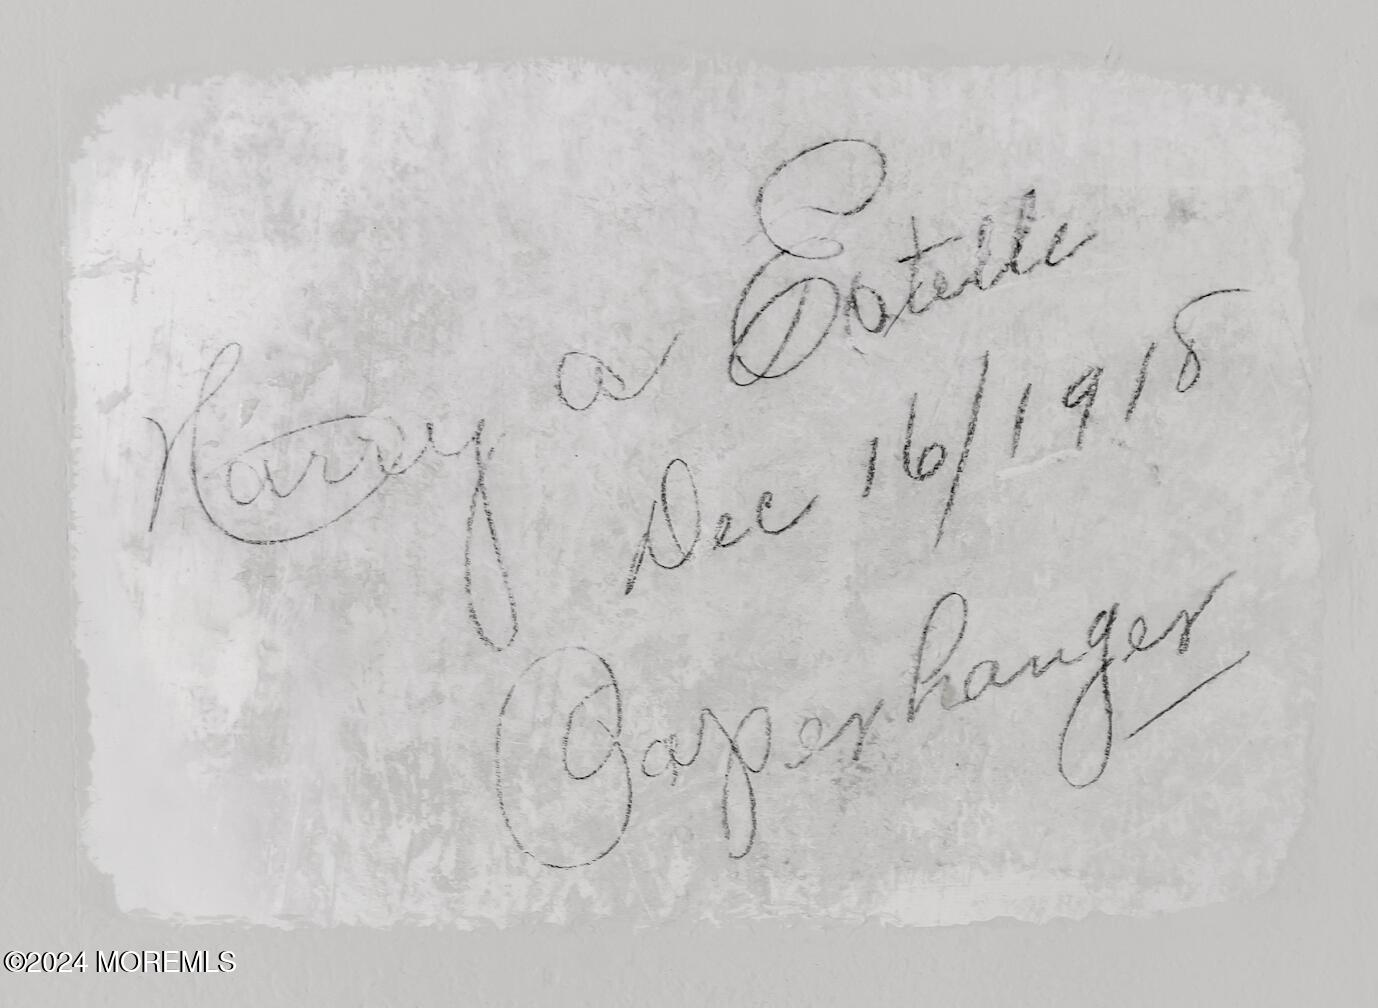 Harry a Estelle
Dec 16/1918
Paperhanger
©2024 MOREMLS